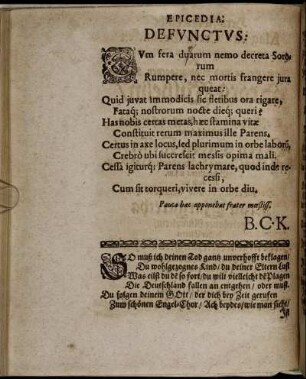 EPICEDIA.
DEFVNCTVS:
CVm fera duarum nemo decreta Soro-
rum
Rumpere, nec mortis frangere jura
queat:
Quid juvat immodicis sic fletibus ora rigare,
Fataq; nostrorum nocte dieq; queri?
Has nobis certas metas, hæc stamina vitæ
Constituit rerum maximus ille Parens,
Certus in axe locus, sed plurimum in orbe laborũ,
Crebrò ubi succrescit messis opima mali.
Cessa igiturq; Parens lachrymare, quod inde re-
cessi,
Cum sit torqueri, vivere in orbe diu.
Pauca hæc apponebat frater mœstiss.
B.C.K.
SO muß ich deinen Tod gantz unverhofft beklagen/
Du wohlgezognes Kind/ du deiner Eltern lust
Was eilst du dē so fort/ du wilt vielleicht dē Plagen
Die Deutschland sollen an entgehen/ oder must.
Du folgen deinem GOtt/ der dich bey Zeit geruffen
Zum schönen Engel-Chor/ Ach beydes/ wie man sieht/
Ist